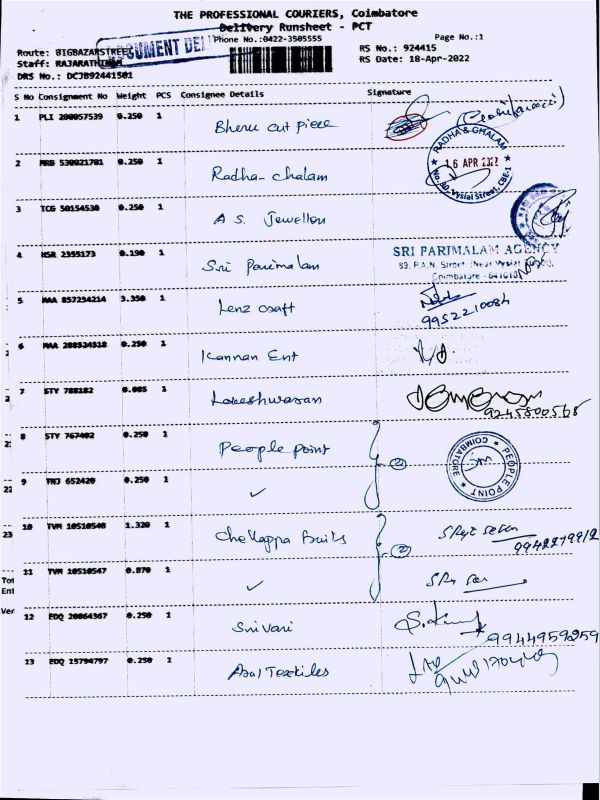 THE PROFESSIONAL COURIERS, Coimbatore
Delivery Runsheet - PCT
DOCUMENT DEL
Phone No.:0422-3505555
Page No.:1
Route: BIGBAZARSTREET
RS No.: 924415
Staff: RAJARATHINAM
RS Date: 18-Apr-2022
DRS No.: DCJB92441501
S No Consignment No Weight PCS Consignee Details Signature
1 PLI 200057539 0.250 1 Bheru cut piece
RADHA & GHALAM
16 APR 2022
No. 80, Vysial Street, CBE-1
2 MRB 530021701 0.250 1 Radha- chalam
3 TCG 50154530 0.250 1 A S. Jewellery
4 HSR 2355173 0.190 1 Sri Parimalam
SRI PARIMALAM AGENCY
89, P.A.N. Street (Near Vysial Street),
Coimbatore - 641010
5 MAA 857234214 3.350 1 Lenz craft
9952210084
6 MAA 288524518 0.250 1 Kannan Ent
7 STY 788182 0.085 1 Lokeshwaran
9245800568
8 STY 767402 0.250 1 People point (2)
COIMBATORE * PEOPLE POINT *
9 TNJ 652420 0.250 1 ✓
10 TVM 10510548 1.320 1 Chellappa fruits (2)
9942279912
11 TVM 10510547 0.870 1 ✓
12 EDQ 20064367 0.250 1 Srivari
S. Kumar
9944959259
13 EDQ 15794797 0.250 1 Asal Textiles
22
23
Tot
Ent
Ver